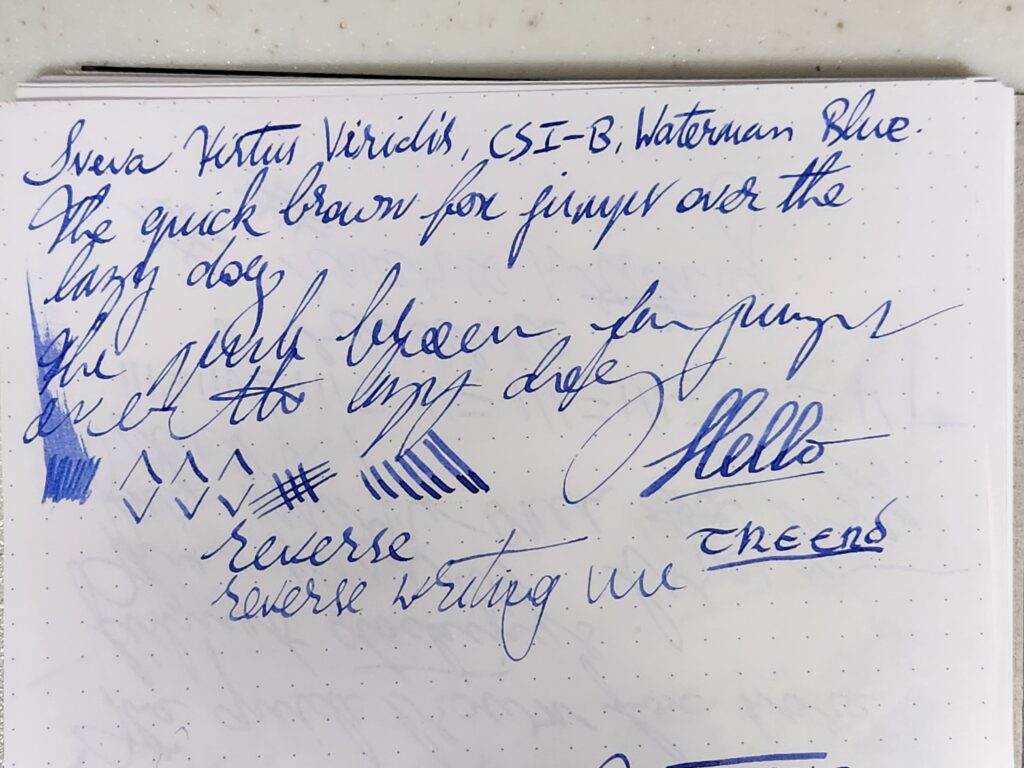 Sveva Virtus Viridis, CSI-B, Waterman Blue.
The quick brown fox jumps over the
lazy dog,
the quick brown fox jumps
over the lazy dog
Hello
reverse
THE END
reverse writing